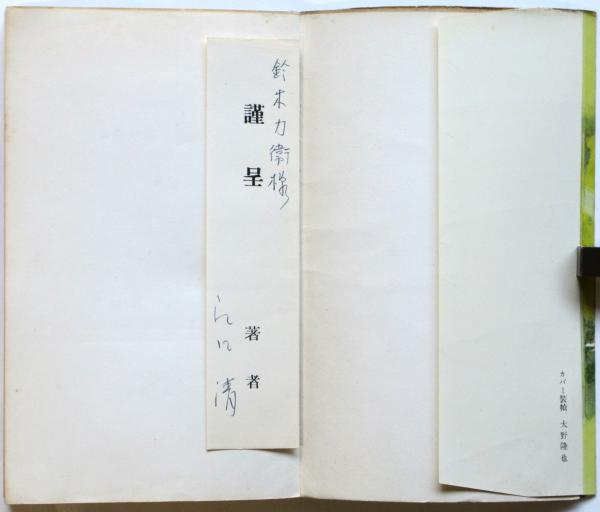 鈴木力衛様
謹呈 著者
江口清
カバー装幀 大野隆也